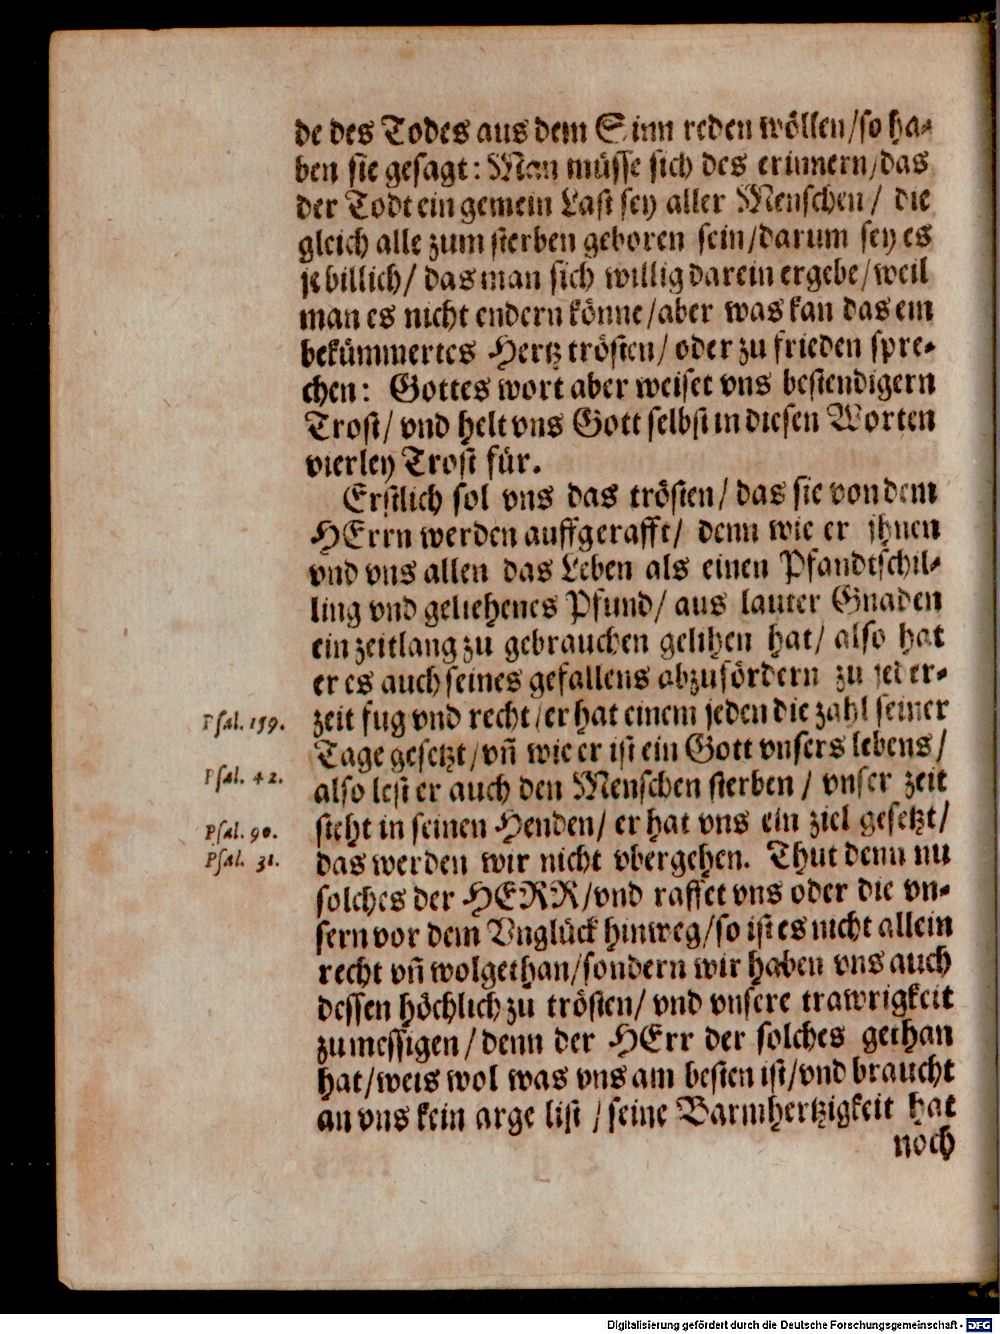 de des Todes aus dem Sinn reden wöllen/so ha-
ben sie gesagt: Man müsse sich des erinnern/das
der Todt ein gemein Last sey aller Menschen/ die
gleich alle zum sterben geboren sein/darum sey es
je billich/ das man sich willig darein ergebe/weil
man es nicht endern könne/aber was kan das ein
bekümmertes Hertz trösten/ oder zu frieden spre-
chen: Gottes wort aber weiset vns bestendigern
Trost/ vnd helt vns Gott selbst in diesen Worten
vierley Trost für.
Erstlich sol vns das trösten/ das sie von dem
HErrn werden auffgerafft/ denn wie er ihnen
vnd vns allen das Leben als einen Pfandtschil-
ling vnd geliehenes Pfund/ aus lauter Gnaden
ein zeitlang zu gebrauchen gelihen hat/ also hat
er es auch seines gefallens abzufördern zu jeder-
Psal. 139. zeit fug vnd recht/er hat einem jeden die zahl seiner
Tage gesetzt/vñ wie er ist ein Gott vnsers lebens/
Psal. 42. also lest er auch den Menschen sterben/ vnser zeit
Psal. 90. steht in seinen Henden/ er hat vns ein ziel gesetzt/
Psal. 31. das werden wir nicht vbergehen. Thut denn nu
solches der HERR/vnd raffet vns oder die vn-
sern vor dem Vnglück hinweg/so ist es nicht allein
recht vñ wolgethan/sondern wir haben vns auch
dessen höchlich zu trösten/ vnd vnsere trawrigkeit
zumessigen/denn der HErr der solches gethan
hat/weis wol was vns am besten ist/vnd braucht
an vns kein arge list/seine Barmhertzigkeit hat
noch
Digitalisierung gefördert durch die Deutsche Forschungsgemeinschaft - DFG